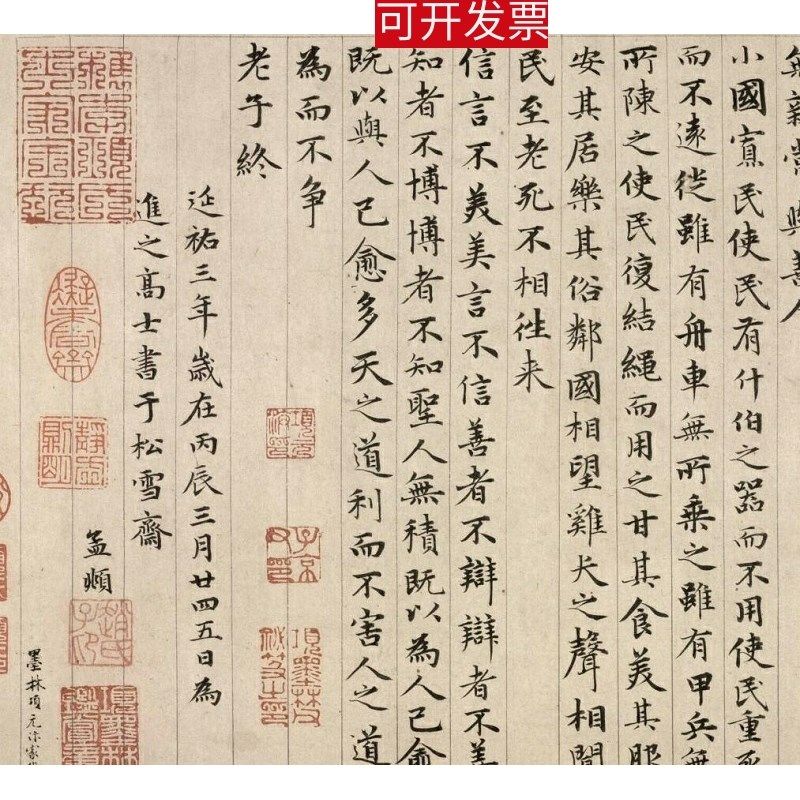 可开发票
無親常與善人
小國寡民使民有什伯之器而不用使民重死
而不遠徙雖有舟車無所乘之雖有甲兵無
所陳之使民復結繩而用之甘其食美其服
安其居樂其俗鄰國相望雞犬之聲相聞
民至老死不相往来
信言不美美言不信善者不辯辯者不善
知者不博博者不知聖人無積既以為人己愈
既以與人已愈多天之道利而不害人之道
為而不争
老子終
項元汴印
子京父印
項墨林父祕笈之印
延祐三年歲在丙辰三月廿四五日為
進之高士書于松雪齋
孟頫
趙氏子昂
墨林項元汴家